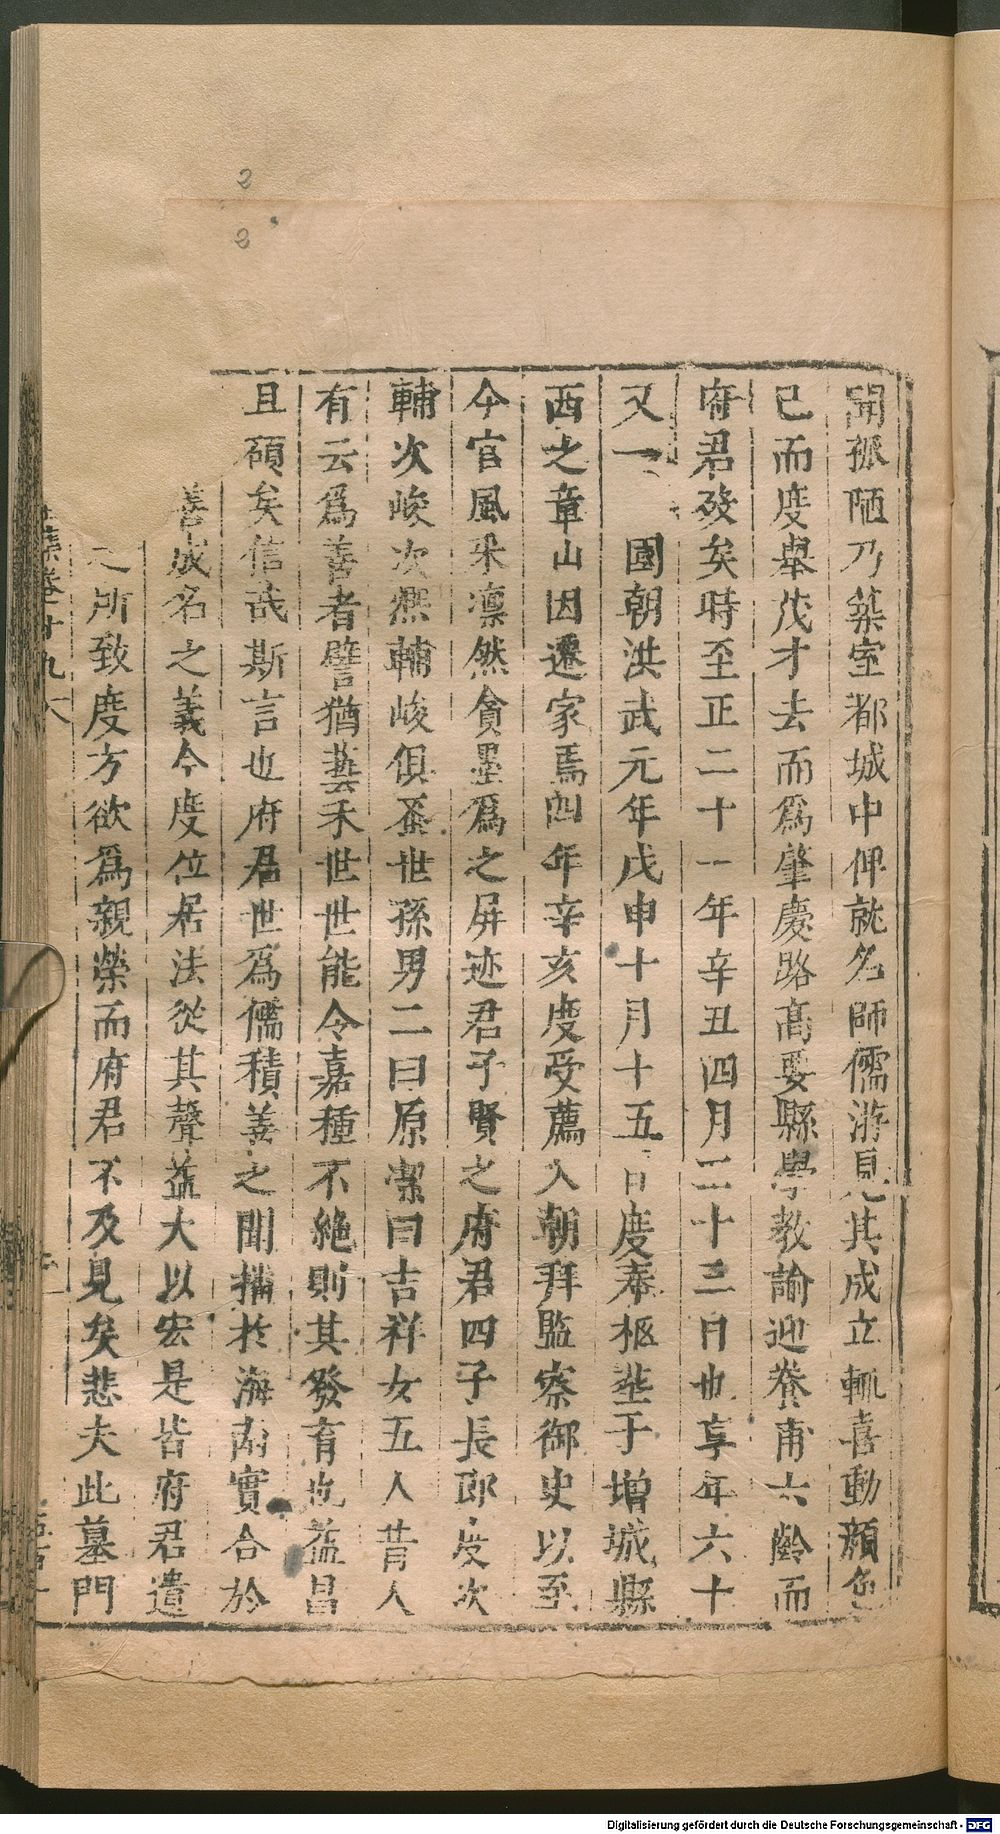 聞孤陋乃築室都城中俾就名師儒游見其成立輒喜動顏色
已而度舉茂才去而爲肇慶路高要縣學教諭迎養甫六齡而
府君歿矣時至正二十一年辛丑四月二十三日也享年六十
又一 國朝洪武元年戊申十月十五日度奉柩塟于增城縣
西之章山因遷家焉四年辛亥度受薦入朝拜監察御史以至
今官風采凛然貪墨爲之屏迹君子賢之府君四子長即度次
輔次峻次 輔峻俱蚤世孫男二曰原潔曰吉祥女五人昔人
有云爲善者譬猶蓺禾世世能令嘉種不絶則其發育也益昌
且碩矣信哉斯言也府君世爲儒積善之聞播於海 實合於
善成名之義今度位居法從其聲益大以宏是皆府君遺
之所致度方欲爲親榮而府君不及見矣悲夫此墓門
集卷十九
2
2
Digitalisierung gefördert durch die Deutsche Forschungsgemeinschaft - DFG